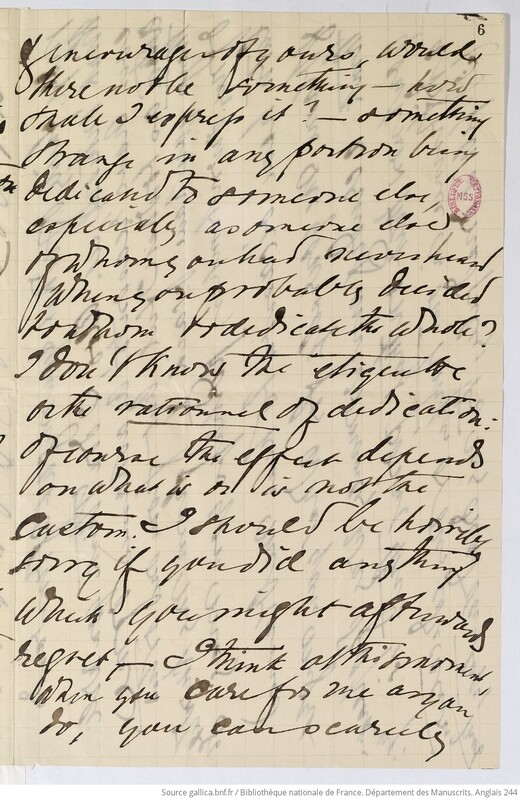 6
& encourager of yours, would
there not be something — how
shall I express it? — something
strange in any portion being
dedicated to someone else,
especially as someone else
of whom you had never heard
when you probably decided
to whom to dedicate the whole?
I don't know the etiquette
or the rationnel of dedication:
of course the effect depends
on what is or is not the
custom. I should be horribly
sorry if you did anything
which you might afterwards
regret — I think at this moment,
when you care for me as you
do, you can scarcely
MSS
Source gallica.bnf.fr / Bibliothèque nationale de France. Département des Manuscrits. Anglais 244